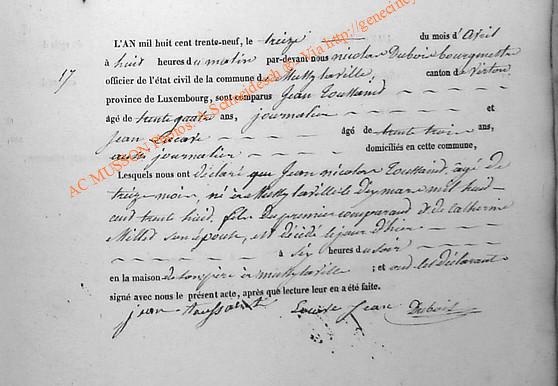 AC MUSSON Photos: A. Schneidesch @ Via http://genecine
17
L'AN mil huit cent trente-neuf, le treize du mois d'Avril
à huit heures du matin par-devant nous nicolas Dubois bourgmestre
officier de l'état civil de la commune de Mussy laville, canton de Virton,
province de Luxembourg, sont comparus Jean Toussaind
âgé de trente quatre ans, journalier et
Jean âgé de trente trois ans,
aussi journalier domiciliés en cette commune,
Lesquels nous ont déclaré que Jean nicolas Toussaind, âgé de
treize mois, né à Mussy laville le dix mars mil huit
cent trente huit, fils du premier comparand & de Catherine
son épouse, est décédé le jour d'hier
à six heures du soir
en la maison de son père à mussy laville ; et ont les déclarants
signé avec nous le présent acte, après que lecture leur en a été faite.
jean toussaint Jean Dubois